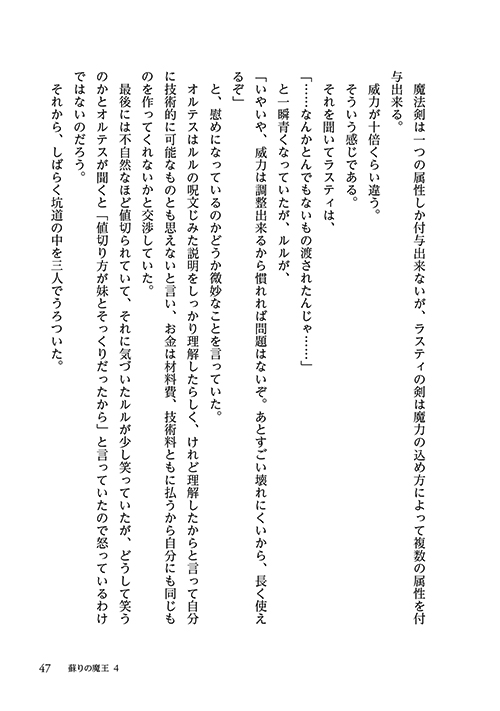 魔法剣は一つの属性しか付与出来ないが、ラスティの剣は魔力の込め方によって複数の属性を付
与出来る。
　威力が十倍くらい違う。
　そういう感じである。
　それを聞いてラスティは、
「……なんかとんでもないもの渡されたんじゃ……」
　と一瞬青くなっていたが、ルルが、
「いやいや、威力は調整出来るから慣れれば問題はないぞ。あとすごい壊れにくいから、長く使え
るぞ」
　と、慰めになっているのかどうか微妙なことを言っていた。
　オルテスはルルの呪文じみた説明をしっかり理解したらしく、けれど理解したからと言って自分
に技術的に可能なものとも思えないと言い、お金は材料費、技術料ともに払うから自分にも同じも
のを作ってくれないかと交渉していた。
　最後には不自然なほど値切られていて、それに気づいたルルが少し笑っていたが、どうして笑う
のかとオルテスが聞くと「値切り方が妹とそっくりだったから」と言っていたので怒っているわけ
ではないのだろう。
　それから、しばらく坑道の中を三人でうろついた。
47 蘇りの魔王 4